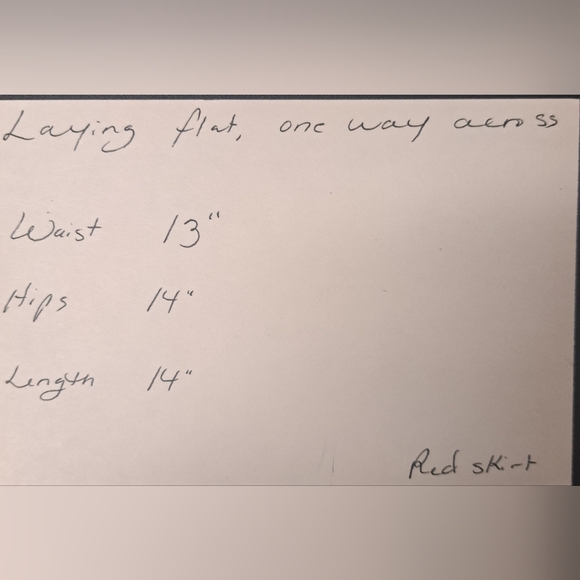 Laying flat, one way across
Waist 13"
Hips 14"
Length 14"
Red skirt